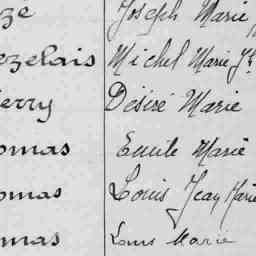 ze Joseph Marie
ezelais Michel Marie Jh
erry Désiré Marie
omas Emile Marie
omas Louis Jean Marie
mas Louis Marie